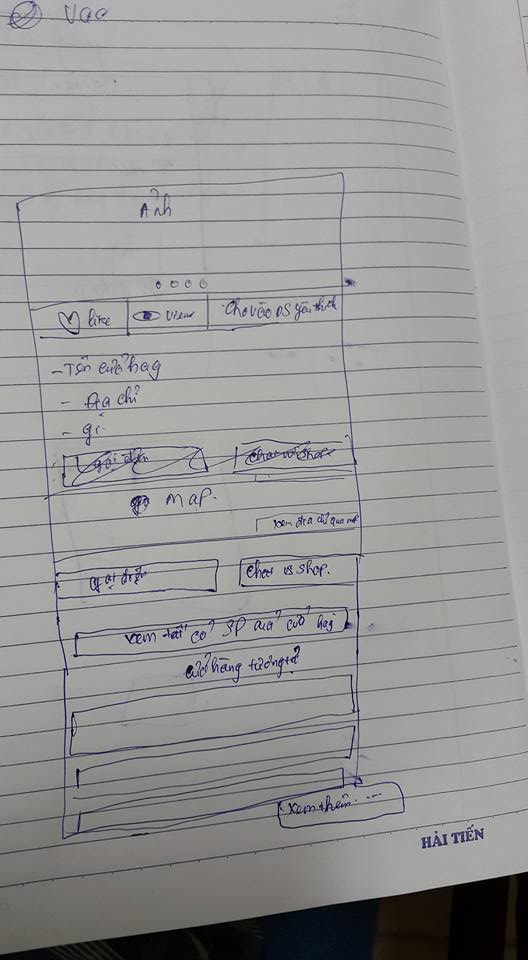 Vao
Ảnh
like view Cho vào DS yêu thích
- Tên cửa hag
- Địa chỉ
- gi
gọi điện chat vs shop
MAP.
xem địa chỉ qua map
gọi điện chat vs shop.
xem tất cả SP của cửa hag
cửa hàng tương tự
xem thêm...
HẢI TIẾN